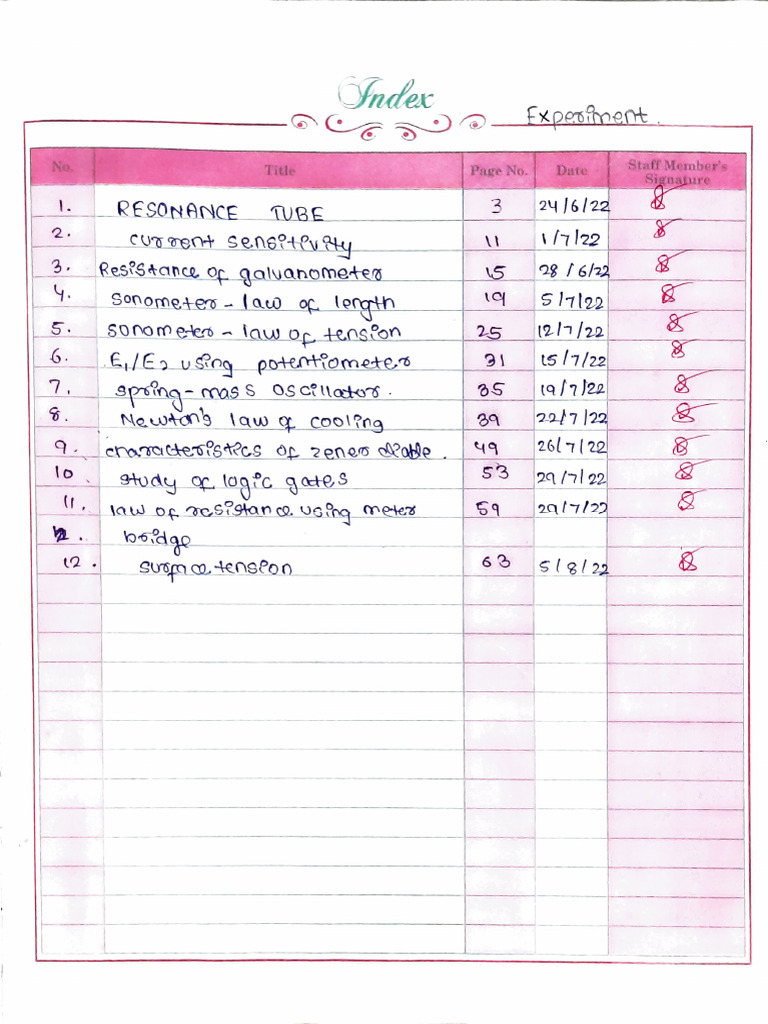 Index
Experiment.
No. Title Page No. Date Staff Member's Signature
1. RESONANCE TUBE 3 24/6/22
2. current sensitivity 11 1/7/22
3. Resistance of galvanometer 15 28/6/22
4. sonometer - law of length 19 5/7/22
5. sonometer - law of tension 25 12/7/22
6. E1/E2 using potentiometer 31 15/7/22
7. spring-mass oscillator. 35 19/7/22
8. Newton's law of cooling 39 22/7/22
9. characteristics of zener diable. 49 26/7/22
10. study of logic gates 53 29/7/22
11. law of resistance using meter 59 29/7/22
bridge
12. surface tension 63 5/8/22